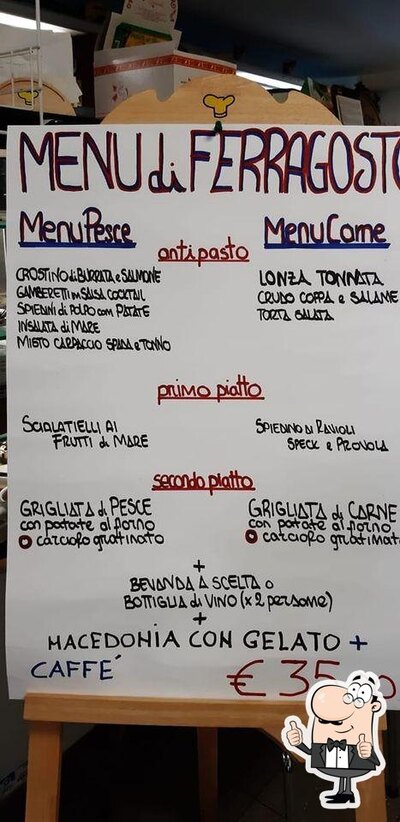 MENU di FERRAGOSTO
Menu Pesce
Menu Carne
antipasto
CROSTINO di BURRATA e SALMONE
GAMBERETTI in SALSA COCKTAIL
SPIEDINI di POLPO com PATATE
INSALATA di MARE
MISTO CARPACCIO SPADA e TONNO
LONZA TONNATA
CRUDO COPPA e SALAME
TORTA SALATA
primo piatto
SCIALATIELLI AI
FRUTTI di MARE
SPIEDINO DI RAVIOLI
SPECK e PROVOLA
secondo piatto
GRIGLIATA di PESCE
con patate al forno
o carciofo gratinato
GRIGLIATA di CARNE
con patate al forno
o carciofo gratinat
+
BEVANDA A SCELTA o
BOTTIGLIA di VINO (x 2 persone)
+
MACEDONIA CON GELATO +
CAFFÉ
€ 35